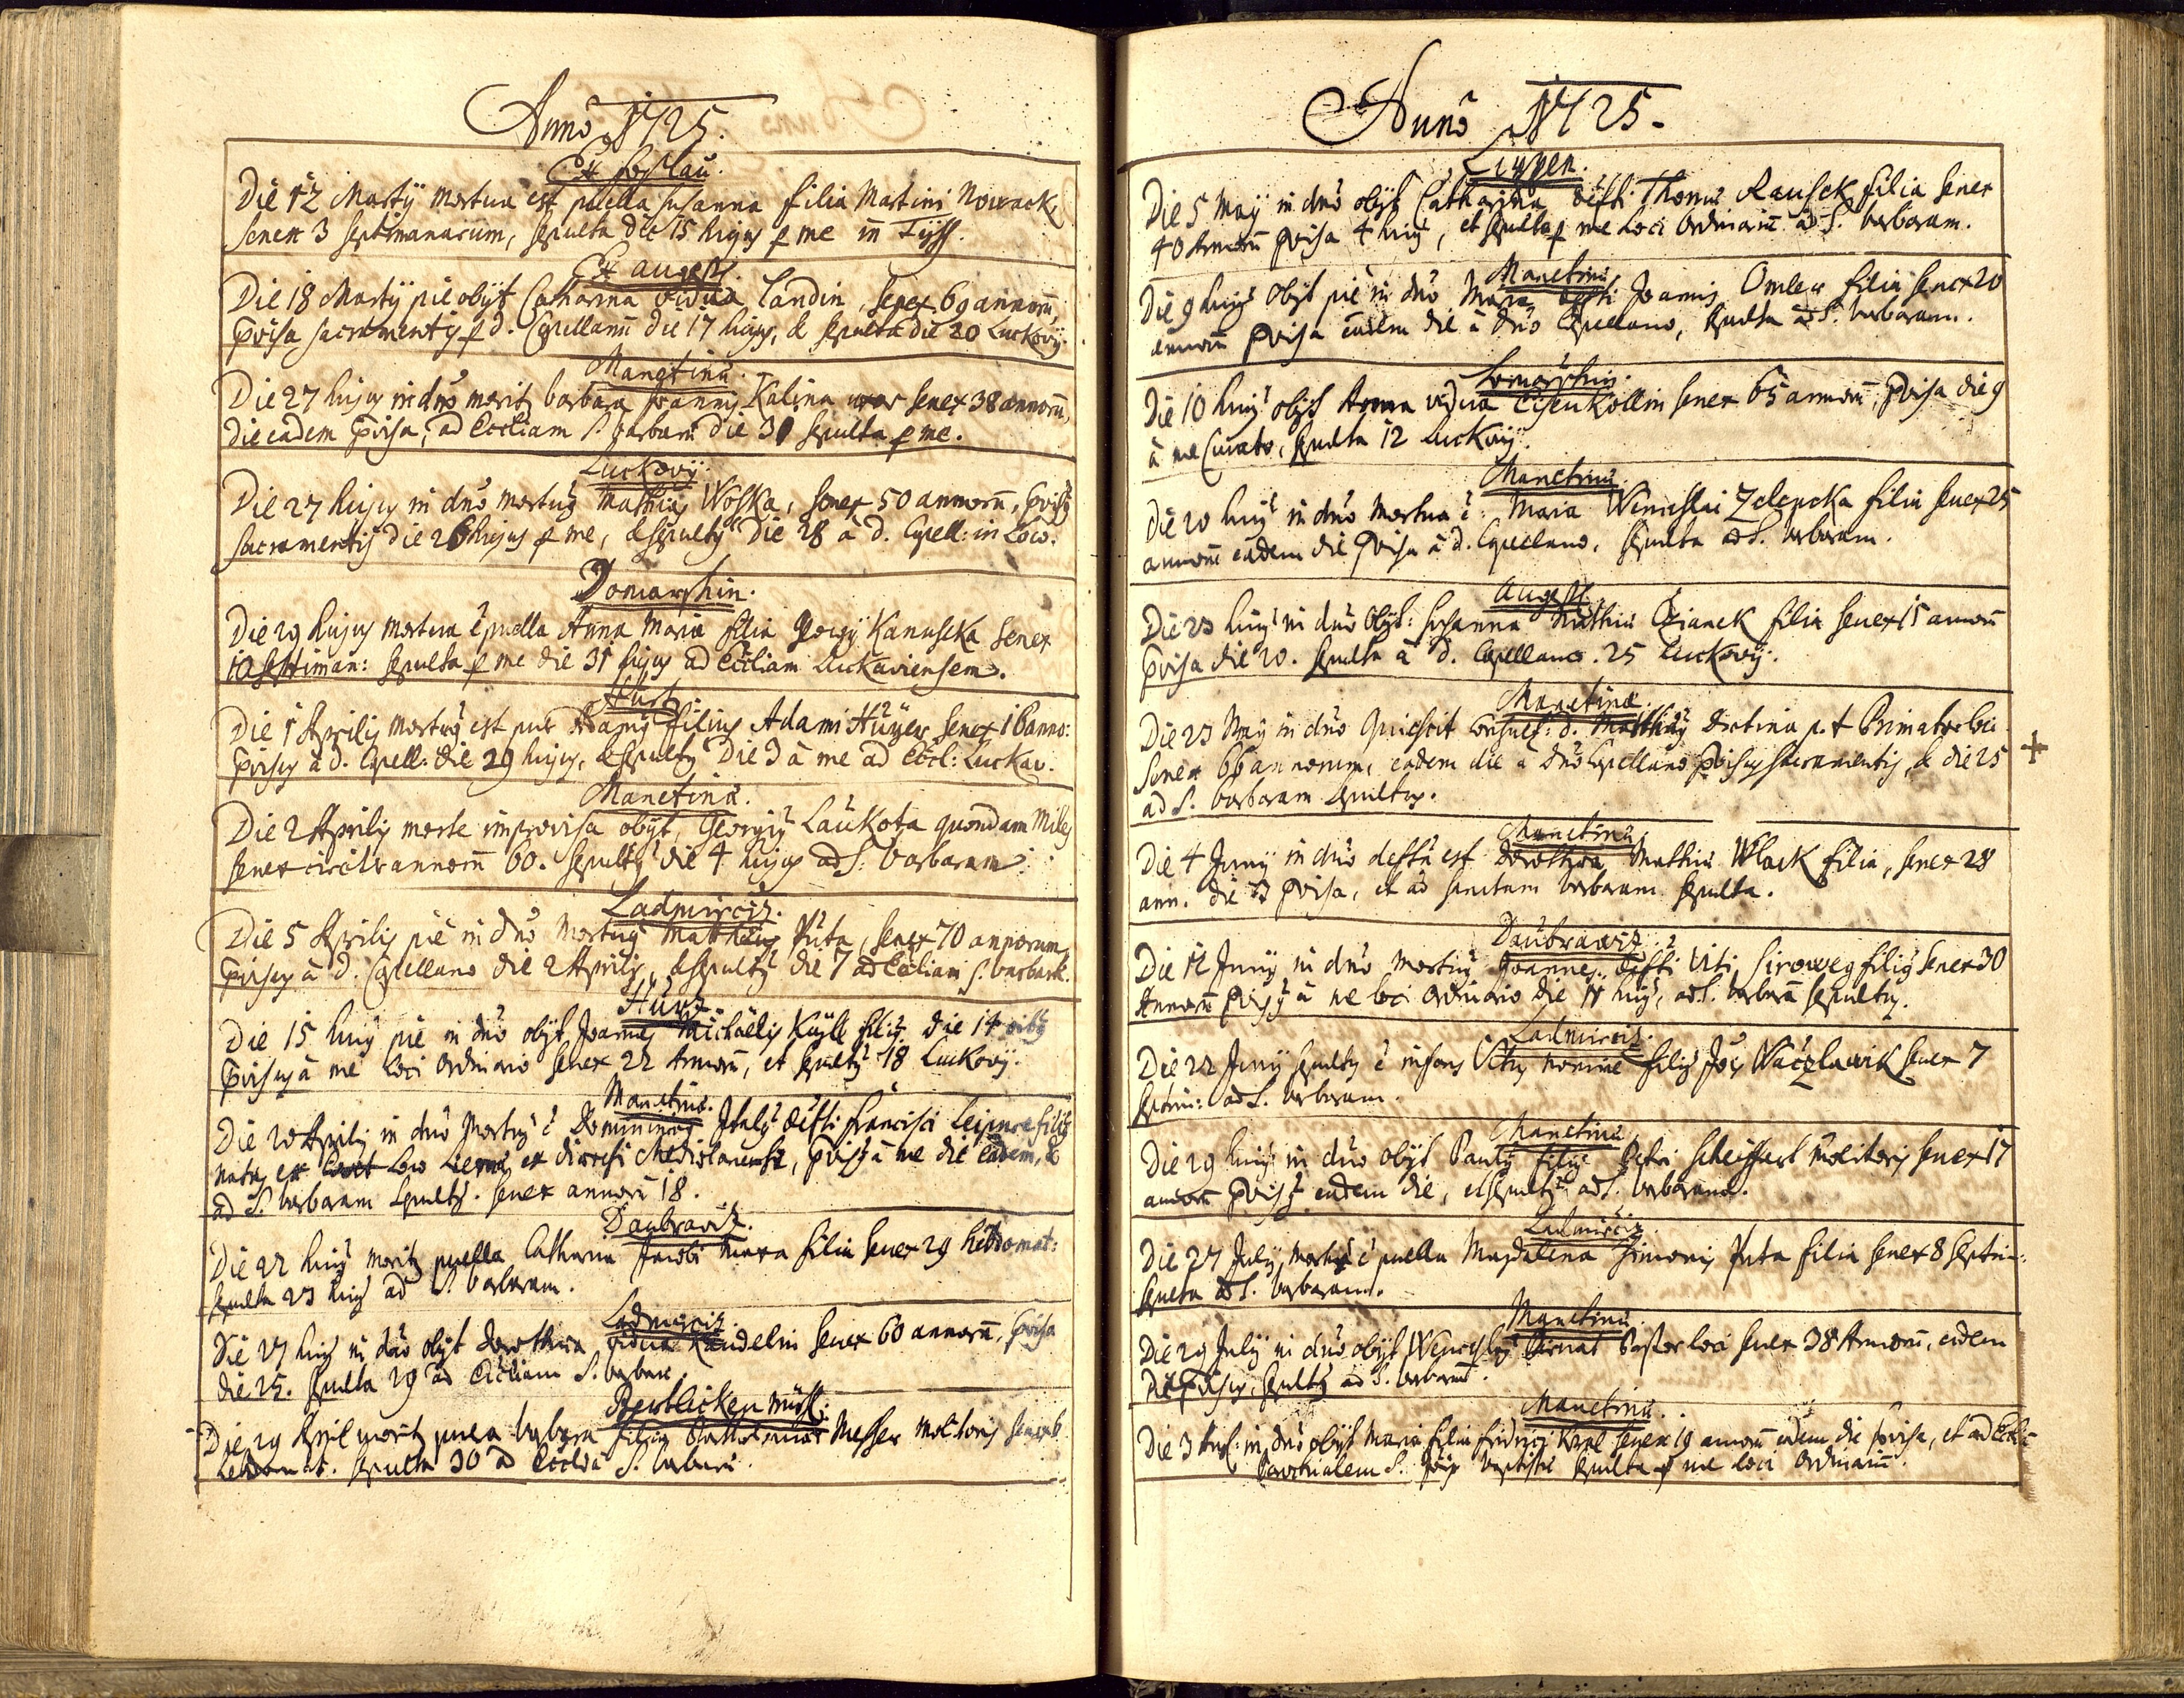 Anno 1725.
Ex
Die 12 Martij mortua est puella Susanna filia Martini Nowack
Senex 3 septimanarum, sepulta die 15 hujus p me in Tyss.
Ex augesti.
Die 18 Martij pie obijt Catharina vidua Landin, senex 69 annorũ,
pvisa sacramentis p d. Capellanũ die 17 hujus, & sepulta die 20 Luckovij.
Manetinũ.
Die 27 hujus in dno morit barbara Joannis Kalina uxor senex 38 annorũ,
die eadem pvisa, ad Eccliam S. barbarã die 30 sepulta p me.
Luckovij.
Die 27 hujus in dno mortuus Mathias Woska, senex 50 annorũ, pvisus
sacramentis die 26 hujus p me, & sepultus die 28 a d. Capell: in Low.
Domarshin.
Die 29 hujus mortua ẽ puella Anna Maria filia Georgij Kanuscka senex
10 septiman: sepulta p me die 31 hujus ad Eccliam Luckaviensem.
Hurk.
Die 1 Aprilis mortuus est puer Adamus filius Adami Hüyer senex 16 anno:
pvisus a d. Capell: die 29 hujus, & sepultus die 3 a me ad Eccl: Luckav.
Manetinũ.
Die 2 Aprilis morte improvisa obijt, Georgius Laukota quondam Miles
senex circiter annorũ 60. sepultus die 4 hujus ad S. Barbaram.
Ladmirciz.
Die 5 Aprilis pie in dno mortuus Matthaeus Puta, senex 70 annorum,
pvisus a d. Capellano die 2 Aprilis, & sepultus die 7 ad Eccliam S. barbarae.
Hurk.
Die 15 hujus pie in dno obijt Joannes Michaelis Kuyll filius die 14
pvisus a me loci ordinario senex 22 Annorũ, et sepultus 18 Luckovij.
Manetinũ.
Die 20 Aprilis in dno Mortuus ẽ Dominicus Italus defti Francisci filius
natus ex loco ex diocesi Mediolanensi, pvisus a me die eadem, &
ad S. barbaram sepultus. senex annorũ 18.
Daubrawiz.
Die 22 hujus morit puella Catharina Jacobi Maxa filia senex 29 hebdomat:
sepulta 23 hujus ad S. barbaram.
Ladmirciz.
Die 27 hujus in dno obijt Dorothea vidua Kandelin senex 60 annorũ, pvisa
die 25. sepulta 29 ad Eccliam S. barbarae.
Die 29 April morit puella barbara filia Bartholomaei Messer molitoris senex 6
hebdomat. sepulta 30 ad Eccliã S. barbarae.
Anno 1725.
Die 5 Maij in dno obijt Catharina defti Thomae Rausek filia senex
40 Annorũ pvisa 4 hujus, et sepulta p me Loci Ordinariũ ad S. barbaram.
Manetinũ
Die 9 hujus obijt pie in dno Maria defti Joannis Omler filia senex 20
annorũ pvisa eadem die a dno Capellano, sepulta ad S. barbaram.
Domarshin.
Die 10 hujus obijt Anna vidua Eisenkollin senex 65 annorũ, pvisa die 9
a me Curato, sepulta 12 Luckovij.
Manetinũ.
Die 20 hujus in dno Mortua ẽ: Maria Wenceslai Zelepcka filia senex 25
annorũ eadem die pvisa a d. Capellano, sepulta ad S. barbaram.
Augesti.
Die 23 hujus in dno obijt: Susanna Mathiae filia senex 15 annorũ
pvisa die 20. sepulta a d. Capellano. 25 Luckovij.
Manetinũ.
Die 23 Maij in dno quiescit Consult: d. Matthias Dictina p. t. Primator loci
Senex 66 annorum, eadem die a dno Capellano pvisus sacramentis, & die 25
ad S. barbaram sepultus.
+
Manetinũ.
Die 4 Junij in dno defta est Dorothea Mathiae Wlack filia, senex 28
ann. die 3 pvisa, et ad sanctam barbaram sepulta.
Daubrawiz.
Die 12 Junij in dno mortuus Joannes defti Viti Siroweg filius senex 30
Annorũ pvisus a me loci ordinario die 11 hujus, ad S. barbarã sepultus.
Ladmirciz.
Die 22 Junij sepultus ẽ infans Vitus nomine filius Jois Waczlawik senex 7
septim: ad S. barbaram.
Manetinũ
Die 29 hujus in dno obijt Paulus filius Petri Scheissert molitoris senex 17
annorũ pvisus eadem die, et sepultus ad S. barbaram.
Ladmirciz.
Die 27 Julij mortua ẽ puella Magdalena Simonis Puta filia senex 8 septim:
sepulta ad S. barbaram.
Manetinũ.
Die 29 Julij in dno obijt Wenceslaus Pastor loci senex 38 Annorũ, eadem
die pvisus, sepultus ad S. barbarã.
Manetinũ.
Die 3 Aug: in dno obijt Maria filia Fridrici senex 19 annorũ eadem die pvisa, et ad Eccliã
Parochialem S. Jois baptistae sepulta p me loci Ordinariũ.